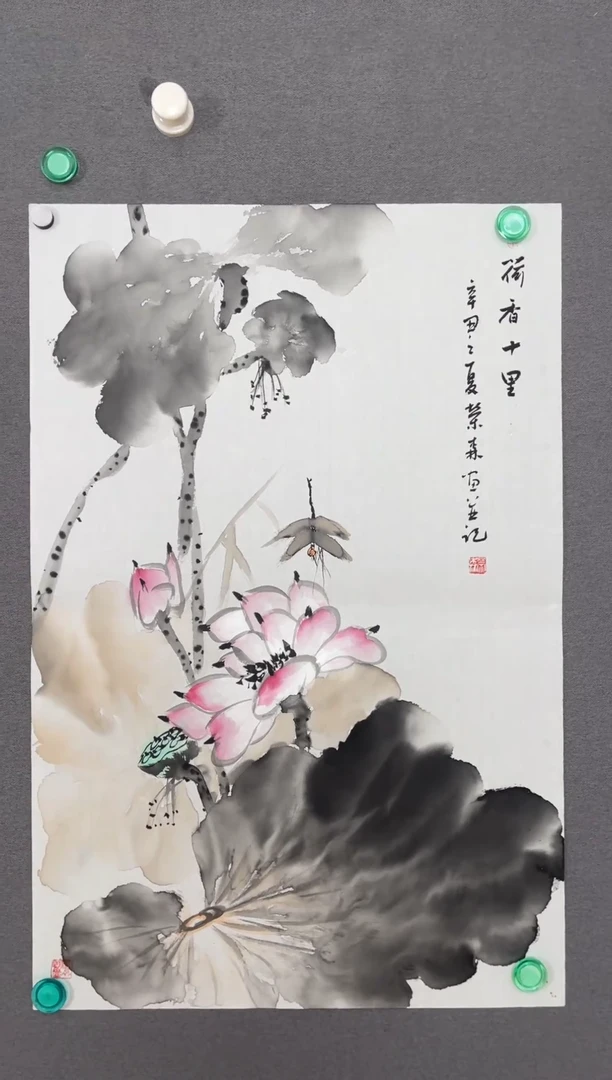 荷香十里
辛丑之夏荣森画并记